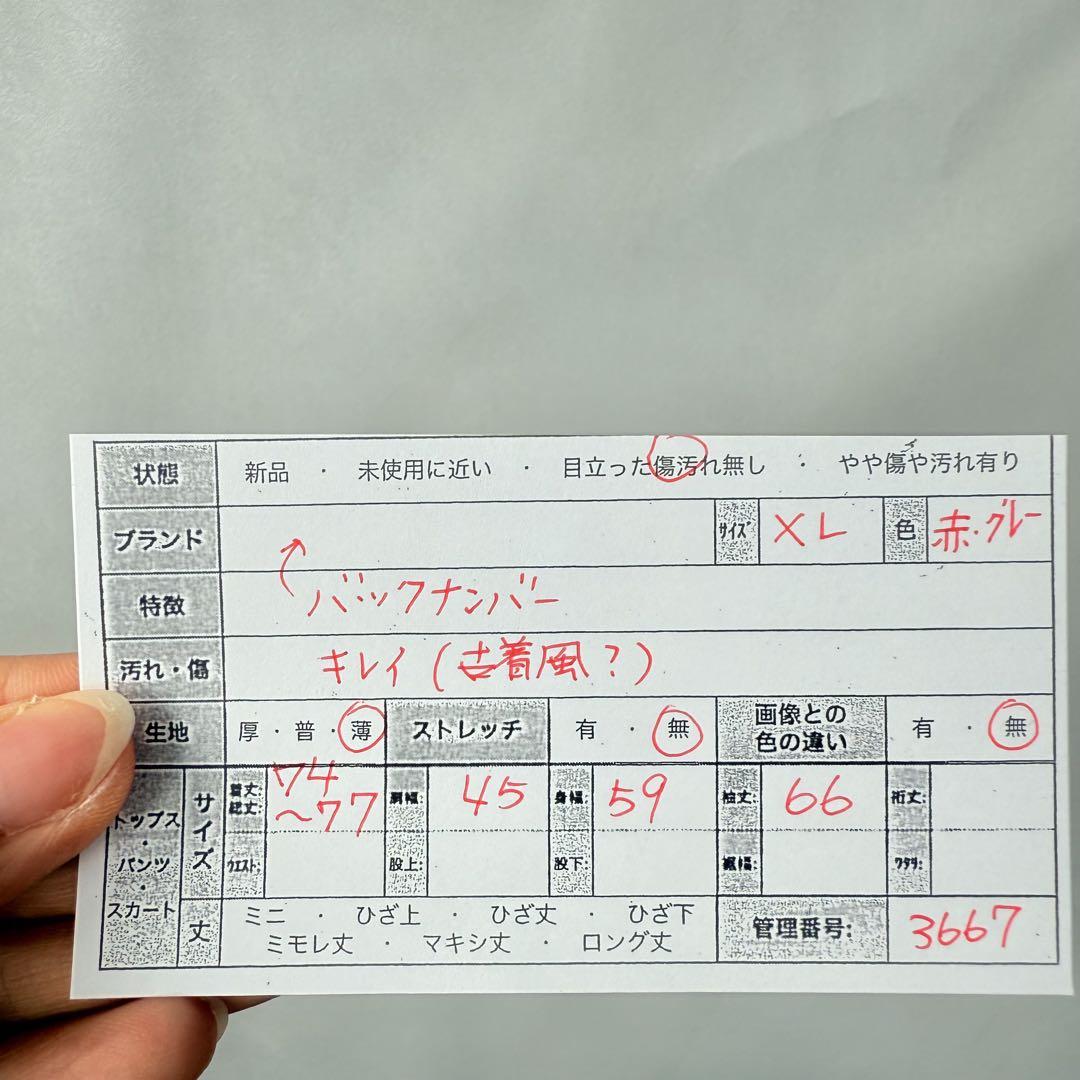 状態 新品 ・ 未使用に近い ・ 目立った傷汚れ無し ・ やや傷や汚れ有り
ブランド サイズ XL 色 赤・グレー
特徴 バックナンバー
汚れ・傷 キレイ(古着風?)
生地 厚・普・薄 ストレッチ 有 ・ 無 画像との色の違い 有 ・ 無
トップス・パンツ・スカート サイズ 着丈: 総丈: 74〜77 肩幅: 45 身幅: 59 袖丈: 66 裄丈:
ウエスト: 股上: 股下: 裾幅: ワタリ:
丈 ミニ ・ ひざ上 ・ ひざ丈 ・ ひざ下
ミモレ丈 ・ マキシ丈 ・ ロング丈 管理番号: 3667